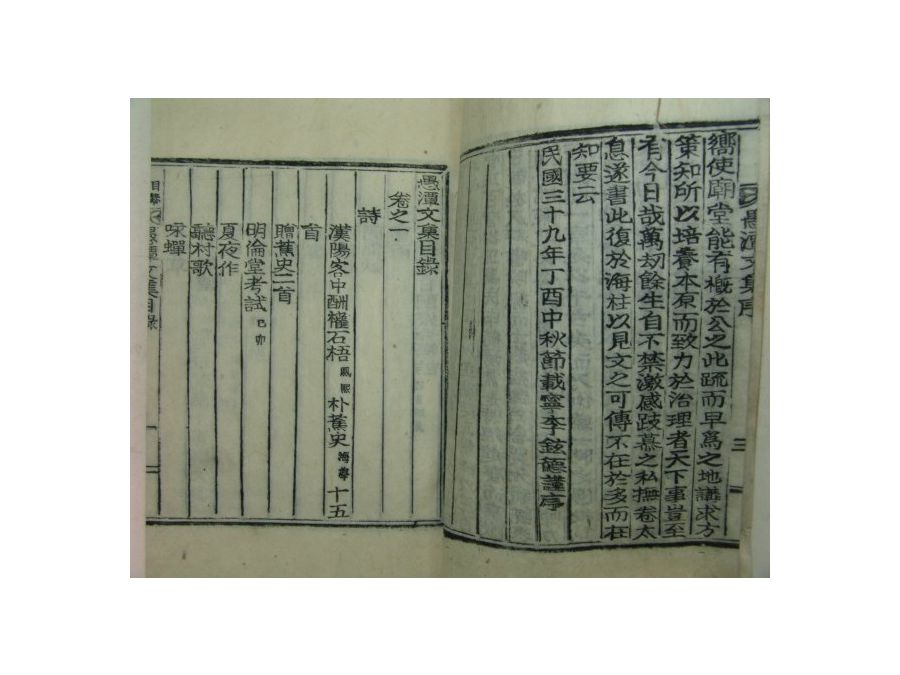 愚潭文集序
三
嚮使廟堂能有槪於公之此疏而早爲之地講求方
策知所以培養本原而致力於治理者天下事豈至
有今日哉萬劫餘生自不禁激感跂慕之私撫卷太
息遂書此復於海柱以見文之可傳不在於多而在
知要云
民國三十九年丁酉中秋節載寧李鉉德謹序
愚潭文集目錄
卷之一
詩
漢陽客中酬權石梧鳳熙朴蕉史海擧十五
首
贈蕉史二首
明倫堂考試己卯
夏夜作
聽村歌
咏蟬
愚潭文集目錄
一